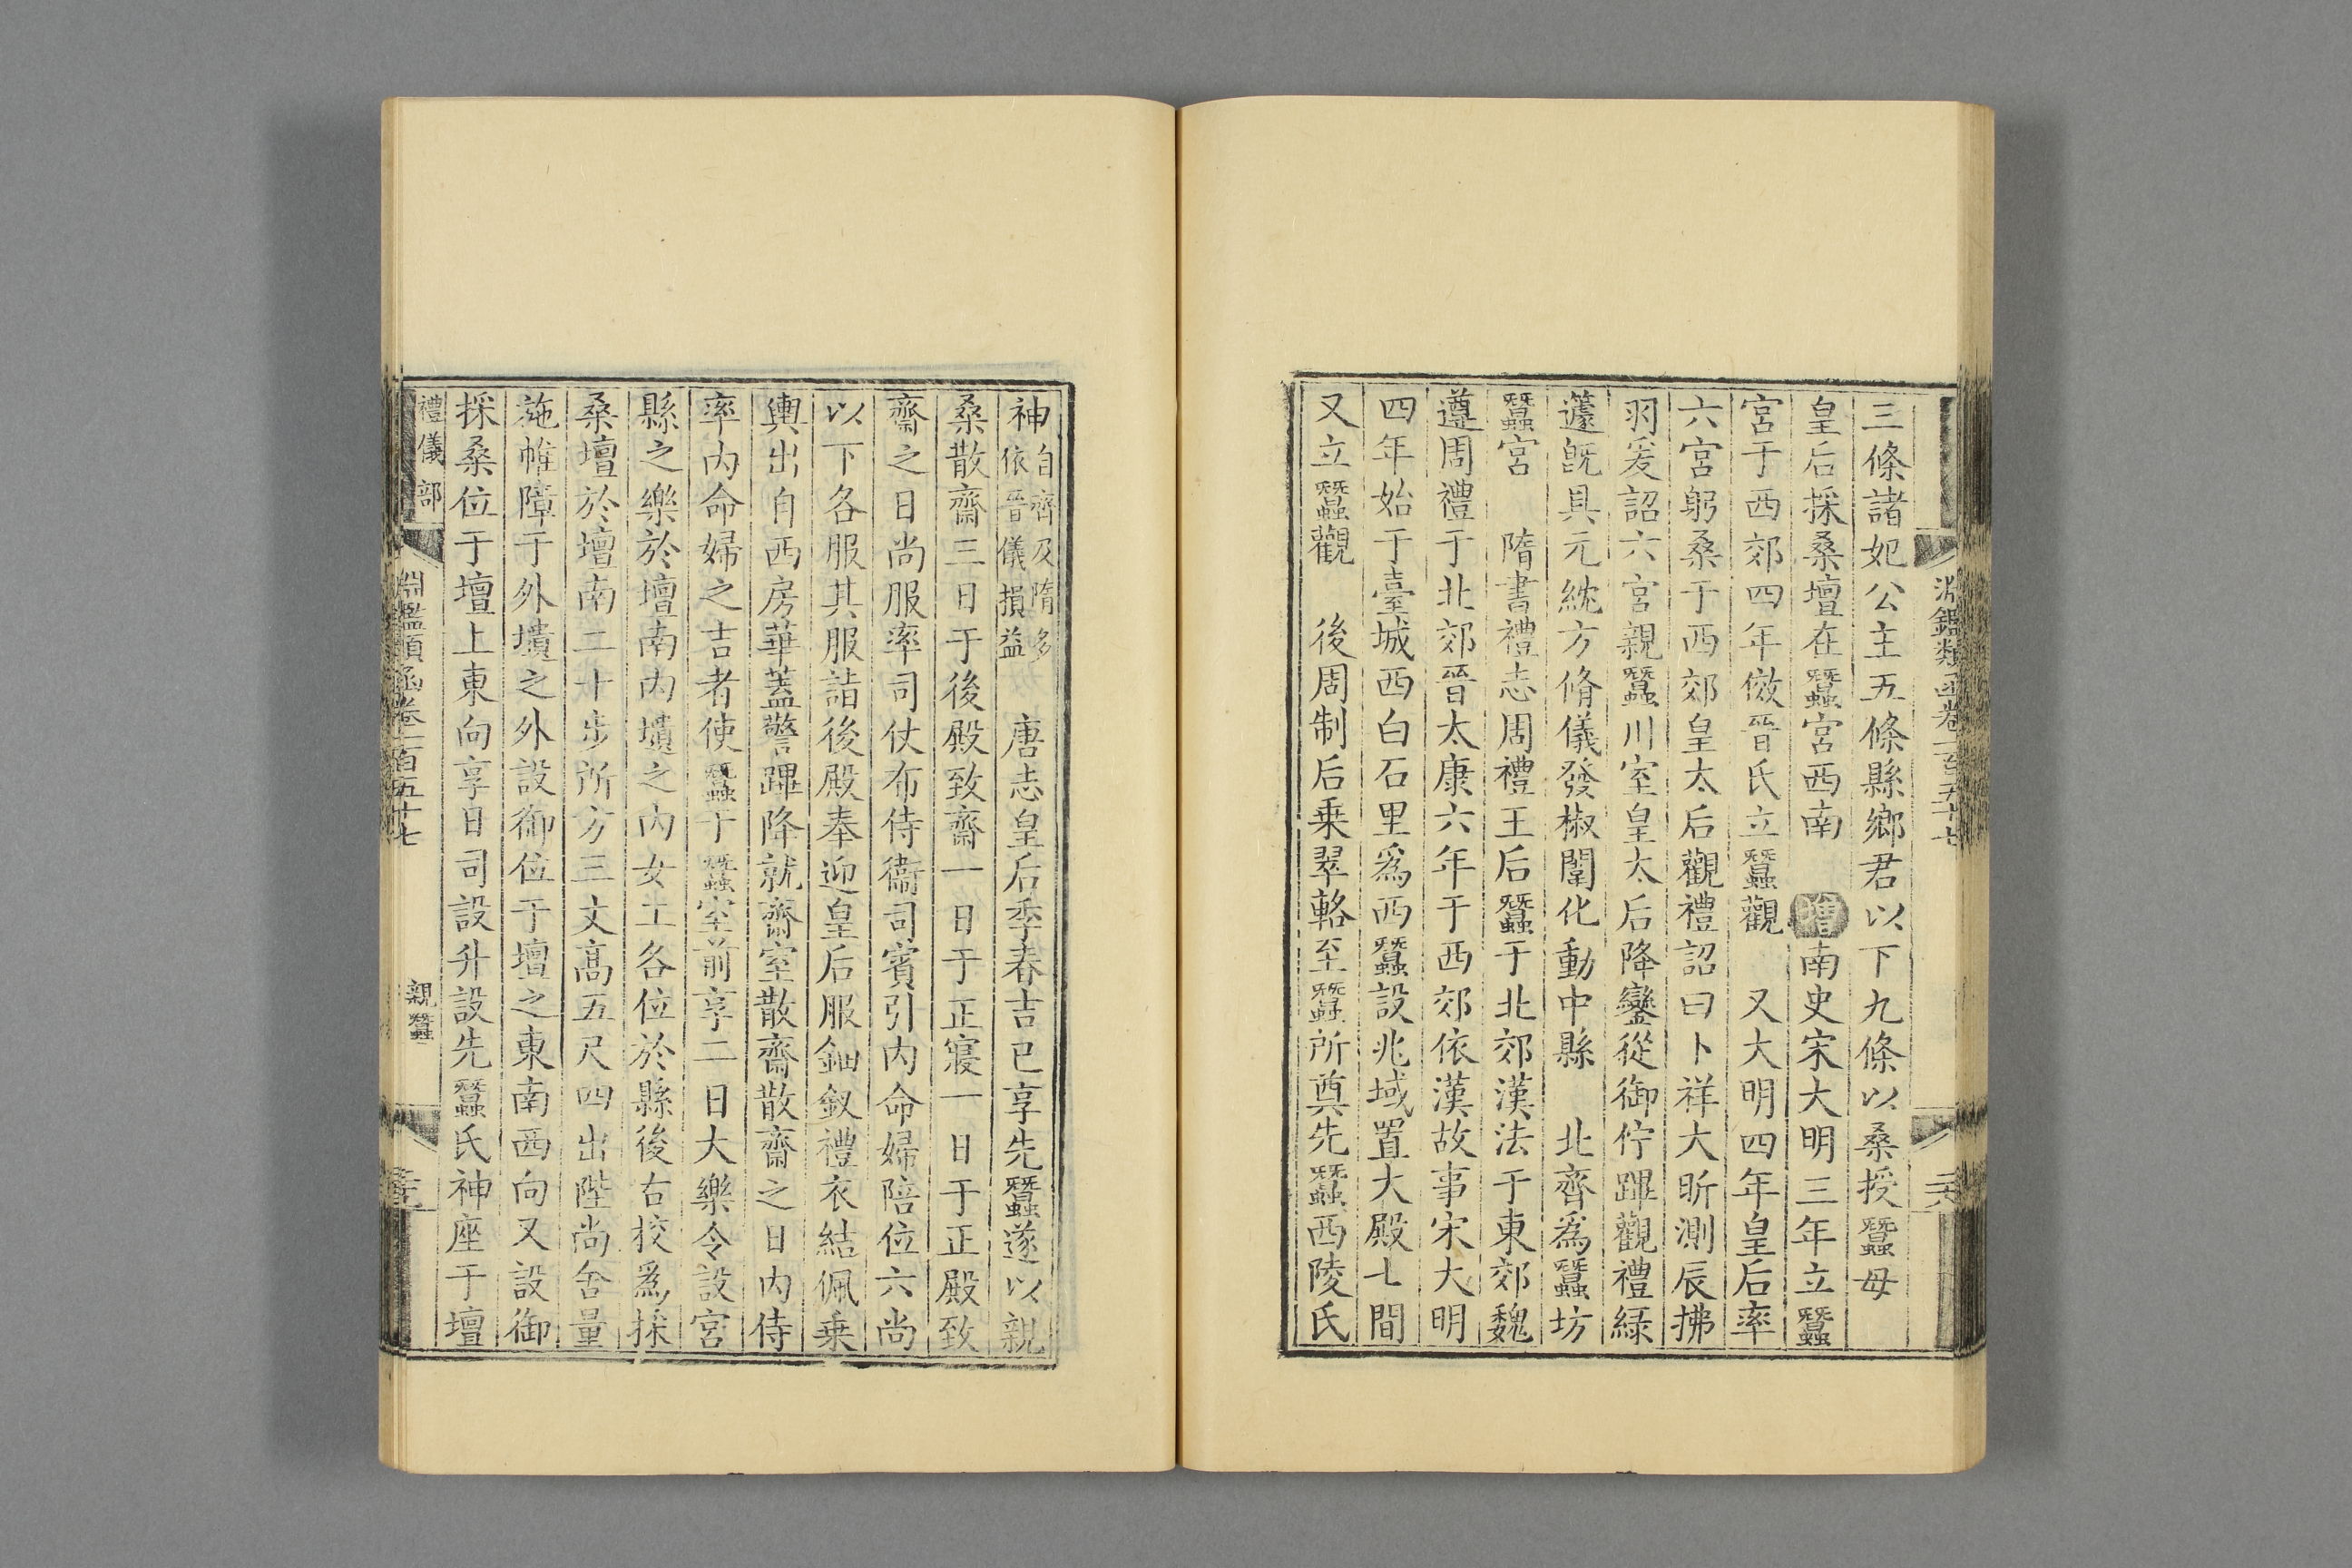 淵鑑類函卷一百五十七
三條諸妃公主五條縣鄉君以下九條以桑授蠶母
皇后採桑壇在蠶宮西南 增南史宋大明三年立蠶
宮于西郊四年倣晉氏立蠶觀 又大明四年皇后率
六宮躬桑于西郊皇太后觀禮詔曰卜祥大昕測辰拂
羽爰詔六宮親蠶川室皇太后降鑾從御佇蹕觀禮綠
蘧旣具元紞方脩儀發椒闈化動中縣 北齊爲蠶坊
蠶宮 隋書禮志周禮王后蠶于北郊漢法于東郊魏
遵周禮于北郊晉太康六年于西郊依漢故事宋大明
四年始于臺城西白石里爲西蠶設兆域置大殿七間
又立蠶觀 後周制后乗翠輅至蠶所奠先蠶西陵氏
神自齊及隋多依晉儀損益 唐志皇后季春吉巳享先蠶遂以親
桑散齋三日于後殿致齋一日于正寢一日于正殿致
齋之日尚服率司仗布侍衞司賓引內命婦陪位六尚
以下各服其服詣後殿奉迎皇后服鈿釵禮衣結佩乗
輿出自西房華蓋警蹕降就齋室散齋散齋之日內侍
率內命婦之吉者使蠶于蠶室前享二日大樂令設宮
縣之樂於壇南內壝之內女工各位於縣後右校爲採
桑壇於壇南二十步所方三丈高五尺四出陛尚舍量
施帷障于外壝之外設御位于壇之東南西向又設御
採桑位于壇上東向享日司設升設先蠶氏神座于壇
禮儀部
淵鑑類函卷一百五十七 親蠶